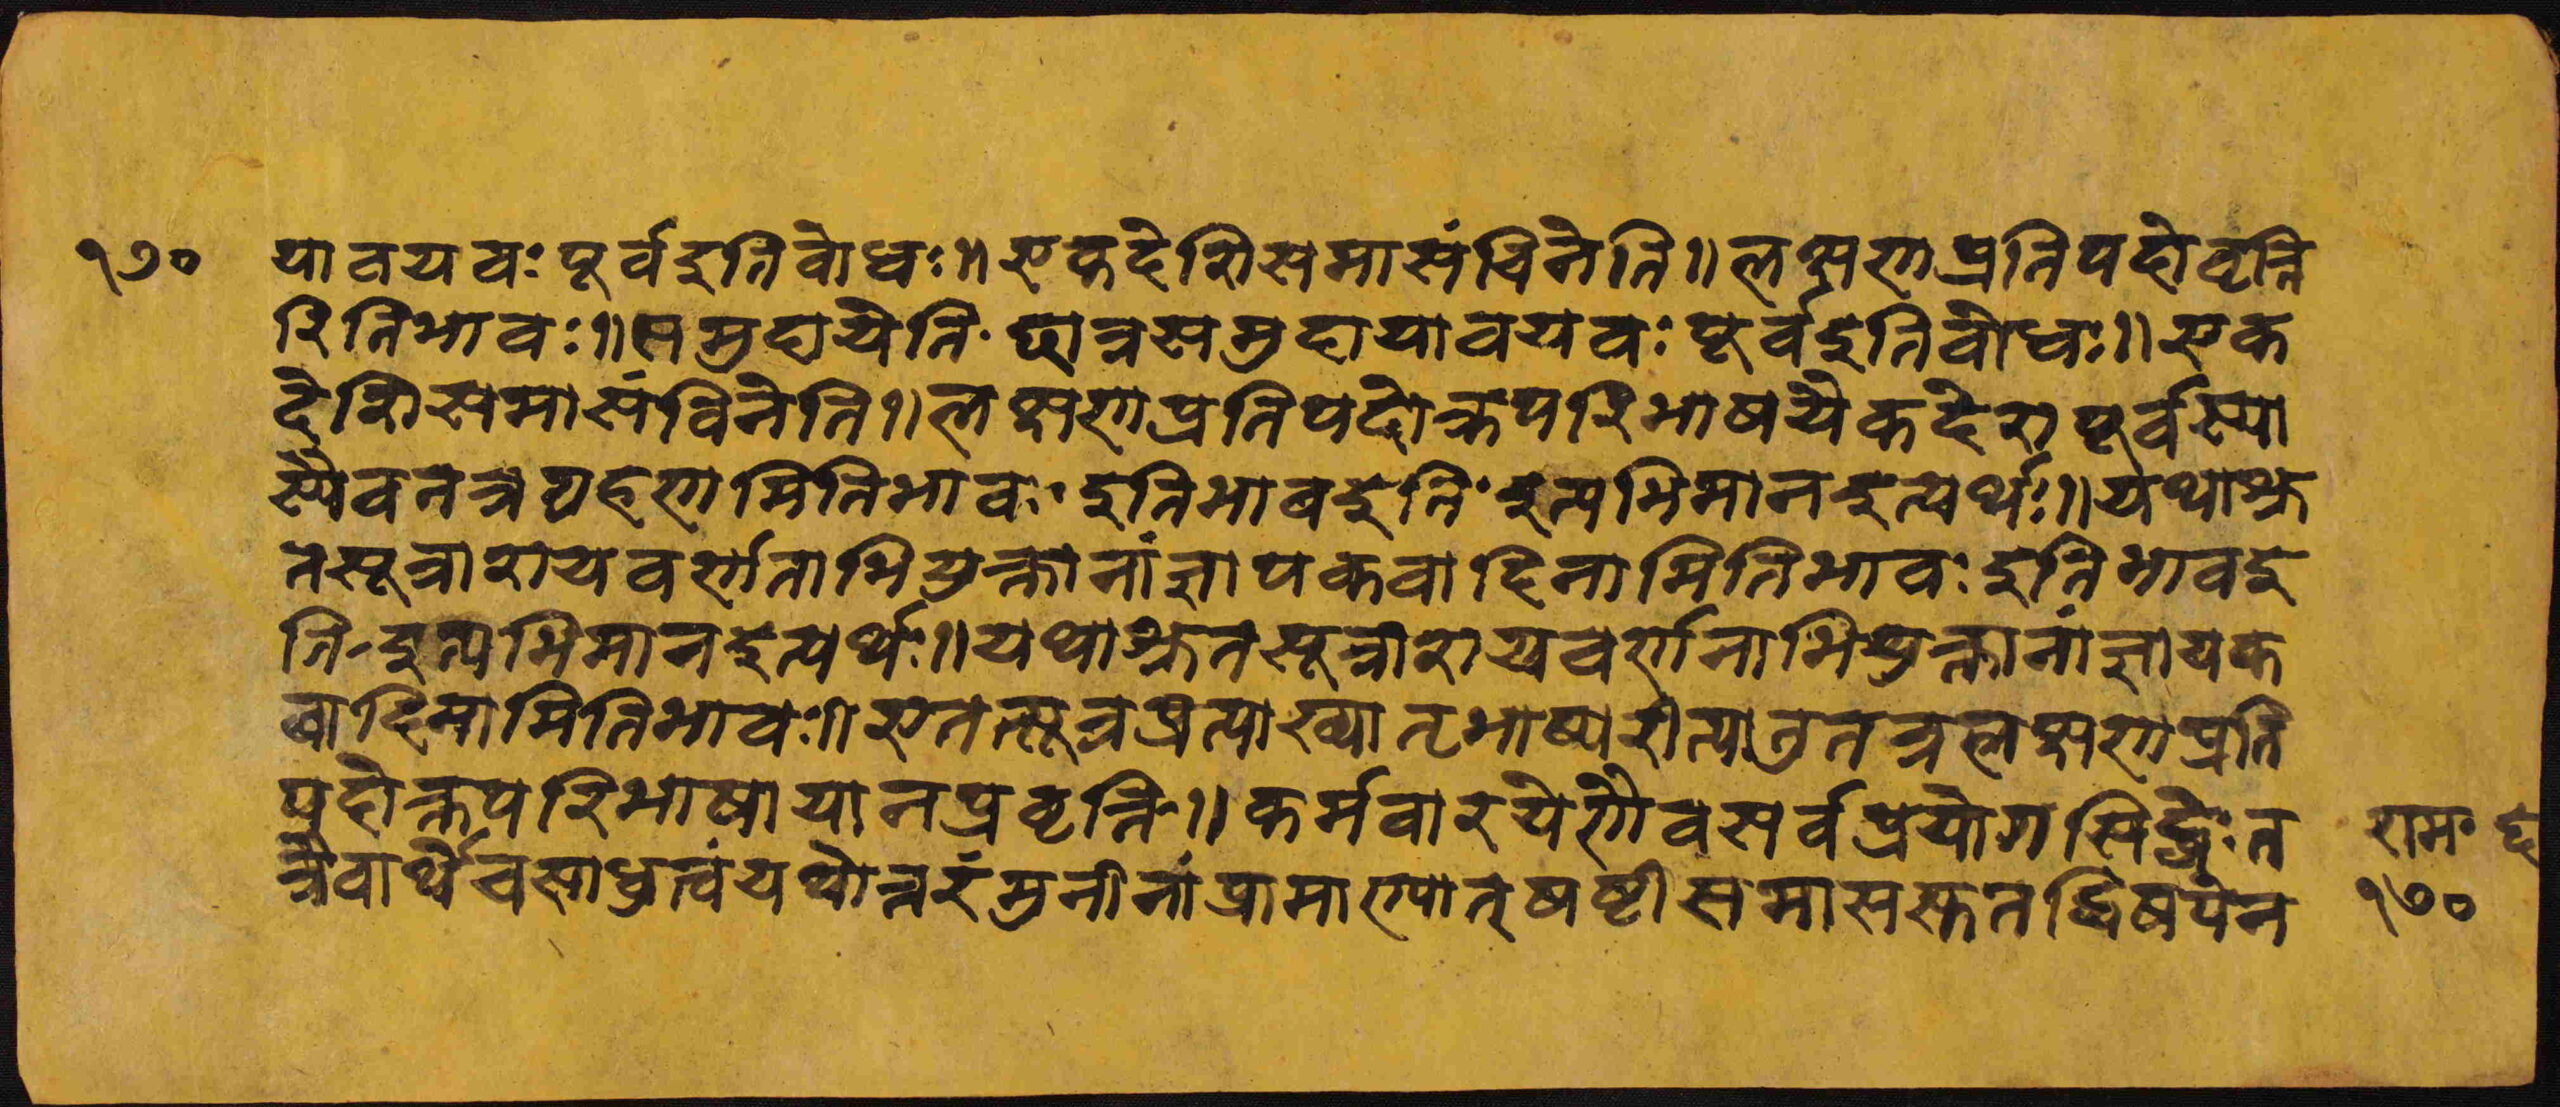 १७० यावयवः पूर्वइतिबोधः॥ एकदेशिसमासंविनेति॥ लक्षणप्रतिपदोवृत्ति
रितिभावः॥ समुदायेति॰ छात्रसमुदायावयवः पूर्वइतिबोधः॥ एक
देशिसमासंविनेति॥ लक्षणप्रतिपदोक्तपरिभाषयैकदेशपूर्वस्या
स्यैवतत्रग्रहणमितिभावः इतिभावइति॰ इत्यभिमानइत्यर्थः॥ यथाश्रु
तसूत्राशयवर्णनाभियुक्तानांज्ञापकवादिनामितिभावः इतिभावइ
ति॰ इत्यभिमानइत्यर्थः॥ यथाश्रुतसूत्राशयवर्णनाभियुक्तानांज्ञायक
वादिनामितिभावः॥ एतत्सूत्रप्रत्याख्यातृभाष्यरीत्यातुतत्रलक्षणप्रति
पदोक्तपरिभाषायानप्रवृत्तिः॥ कर्मधारयेणैवसर्वप्रयोगसिद्धेः त
त्रैवार्थेचसाधुत्वंयथोत्तरंमुनीनांप्रामाण्यात् षष्टीसमासस्ततद्विषयेन
रामः
१७०